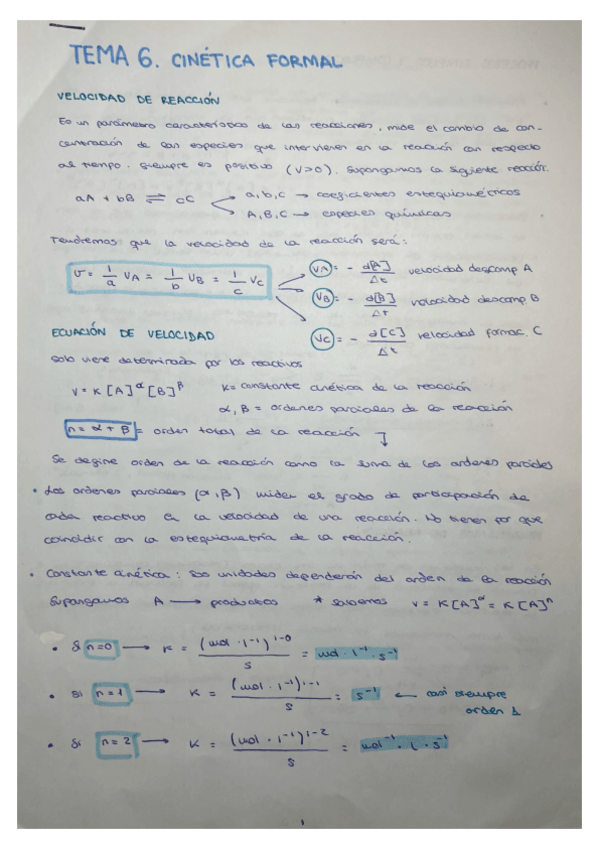 TEMA 6. CINÉTICA FORMAL
VELOCIDAD DE REACCIÓN
Es un parámetro característico de las reacciones, mide el cambio de con-
centración de las especies que intervienen en la reacción con respecto
al tiempo. Siempre es positivo (V>0). Supongamos la siguiente reacción.
aA + bB ⇌ cC
a, b, c → coeficientes estequiométricos
A, B, C → especies químicas
Tendremos que la velocidad de la reacción será:
v = 1/a VA = 1/b VB = 1/c VC
VA = - d[A]/Δt velocidad descomp A
VB = - d[B]/Δt velocidad descomp B
VC = - d[C]/Δt velocidad formac. C
ECUACIÓN DE VELOCIDAD
Solo viene determinada por los reactivos
v = K [A]^α [B]^β K = constante cinética de la reacción
α, β = ordenes parciales de la reacción
n = α + β = orden total de la reacción
Se define orden de la reacción como la suma de los ordenes parciales
• Los ordenes parciales (α, β) miden el grado de participación de
cada reactivo en la velocidad de una reacción. No tienen por que
coincidir con la estequiometría de la reacción.
• Constante cinética: sus unidades dependerán del orden de la reacción
Supongamos A → productos * sabemos v = K[A]^α = K[A]^n
• Si n=0 → K = (mol · l⁻¹)^1-0 / s = mol · l⁻¹ · s⁻¹
• Si n=1 → K = (mol · l⁻¹)^1-1 / s = s⁻¹ ← casi siempre
orden 1
• Si n=2 → K = (mol · l⁻¹)^1-2 / s = mol⁻¹ · l · s⁻¹
1